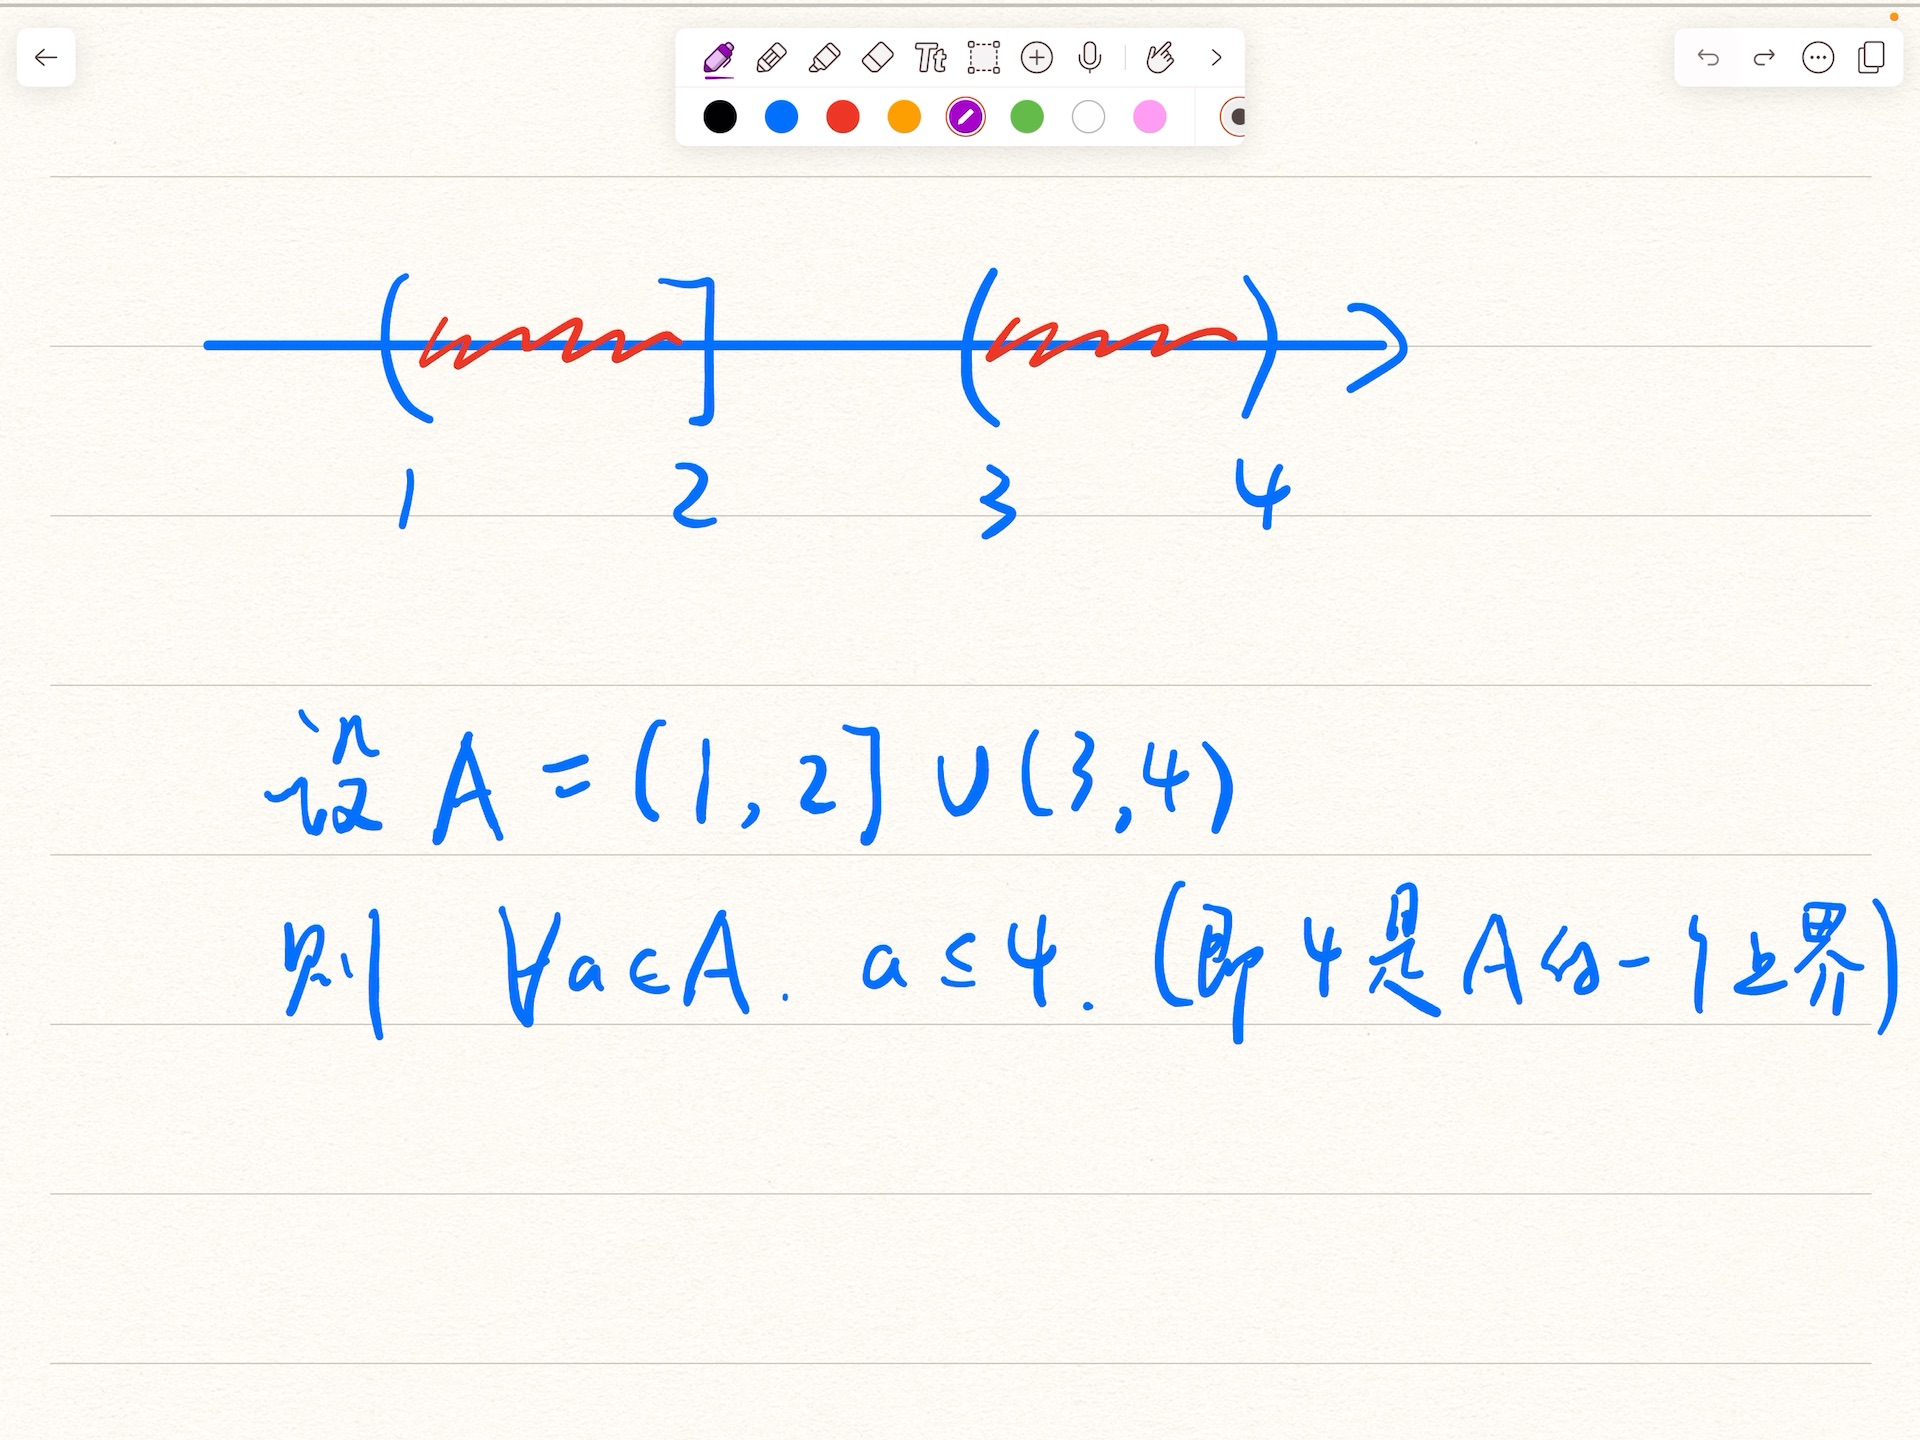 Tt
( ] ( )
1 2 3 4
设 A = (1, 2] ∪ (3, 4)
则 ∀a∈A. a≤4. (即4是A的一个上界)